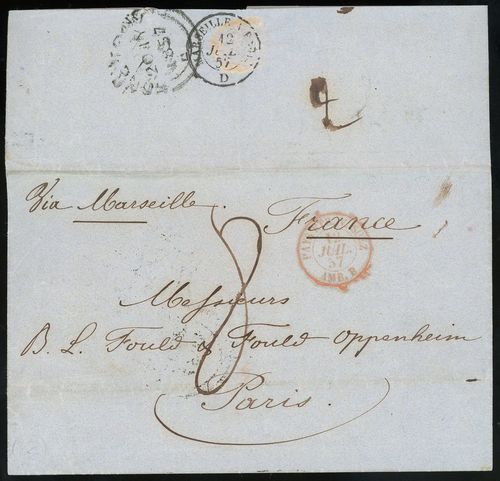 MARSEILLE A
12
JUIL.
57
D
2
Via Marseille.
France
JUIL.
57
AMB. B
8
Messieurs
B. L. Fould & Fould Oppenheim
Paris.